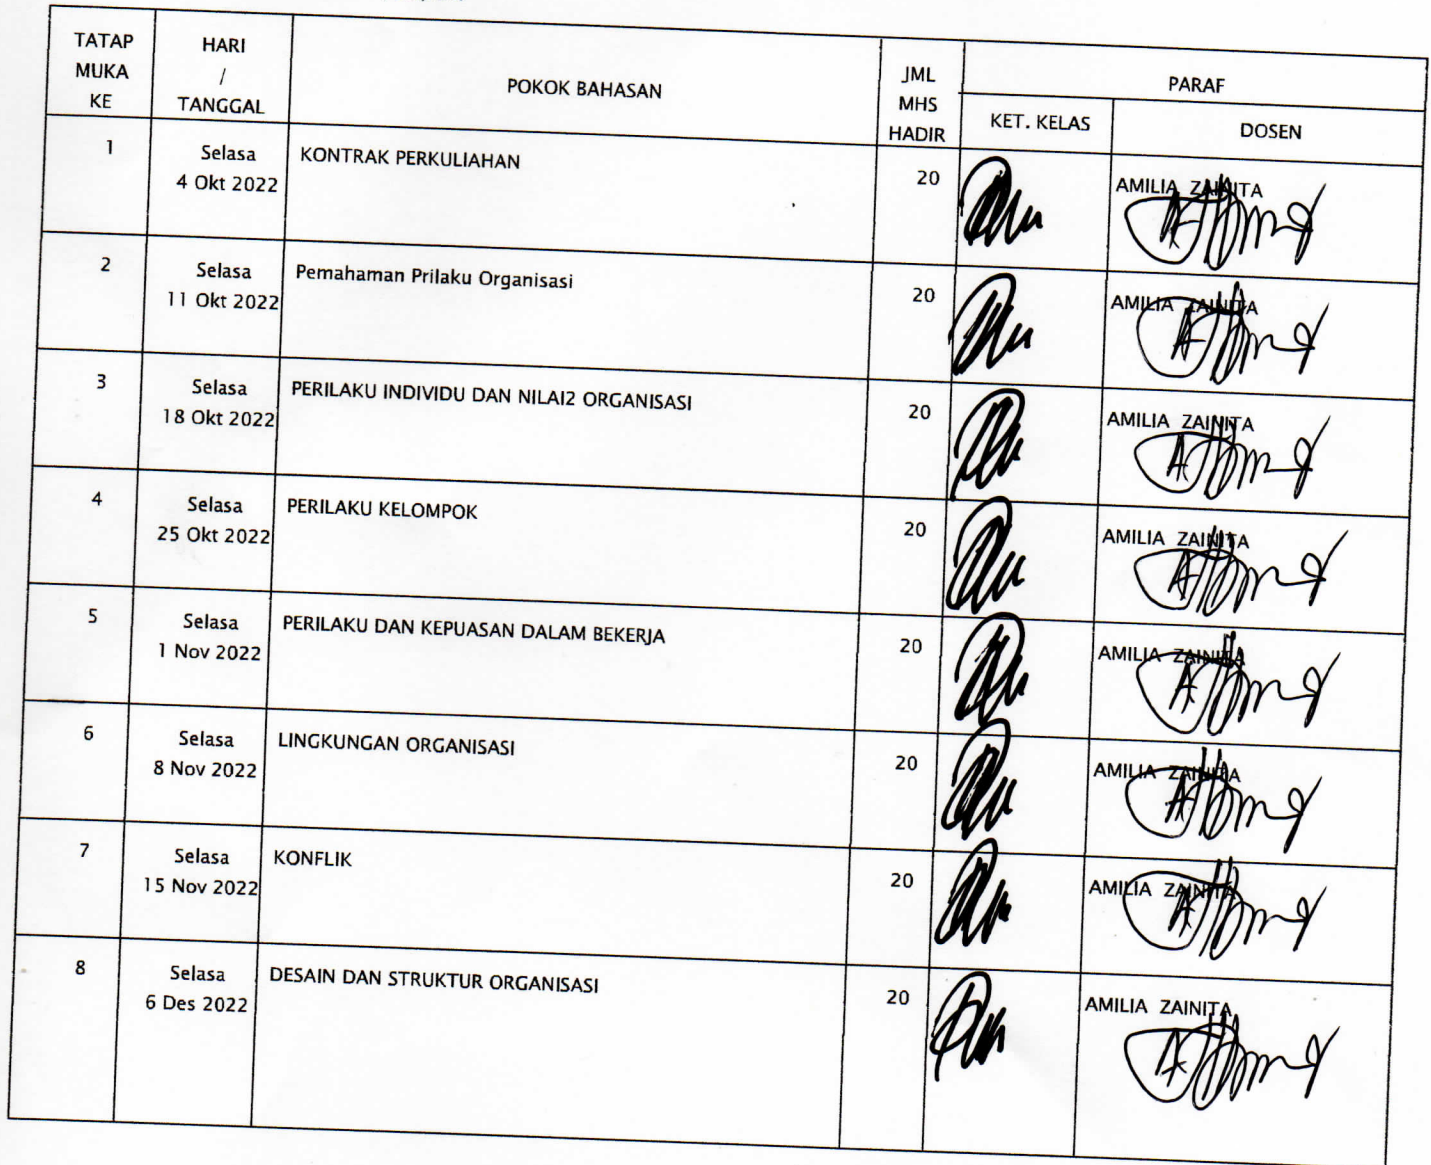 TATAP MUKA KE
HARI / TANGGAL
POKOK BAHASAN
JML MHS HADIR
PARAF
KET. KELAS
DOSEN
1
Selasa
4 Okt 2022
KONTRAK PERKULIAHAN
20
AMILIA ZAINITA
2
Selasa
11 Okt 2022
Pemahaman Prilaku Organisasi
20
AMILIA ZAINITA
3
Selasa
18 Okt 2022
PERILAKU INDIVIDU DAN NILAI2 ORGANISASI
20
AMILIA ZAINITA
4
Selasa
25 Okt 2022
PERILAKU KELOMPOK
20
AMILIA ZAINITA
5
Selasa
1 Nov 2022
PERILAKU DAN KEPUASAN DALAM BEKERJA
20
AMILIA ZAINITA
6
Selasa
8 Nov 2022
LINGKUNGAN ORGANISASI
20
AMILIA ZAINITA
7
Selasa
15 Nov 2022
KONFLIK
20
AMILIA ZAINITA
8
Selasa
6 Des 2022
DESAIN DAN STRUKTUR ORGANISASI
20
AMILIA ZAINITA